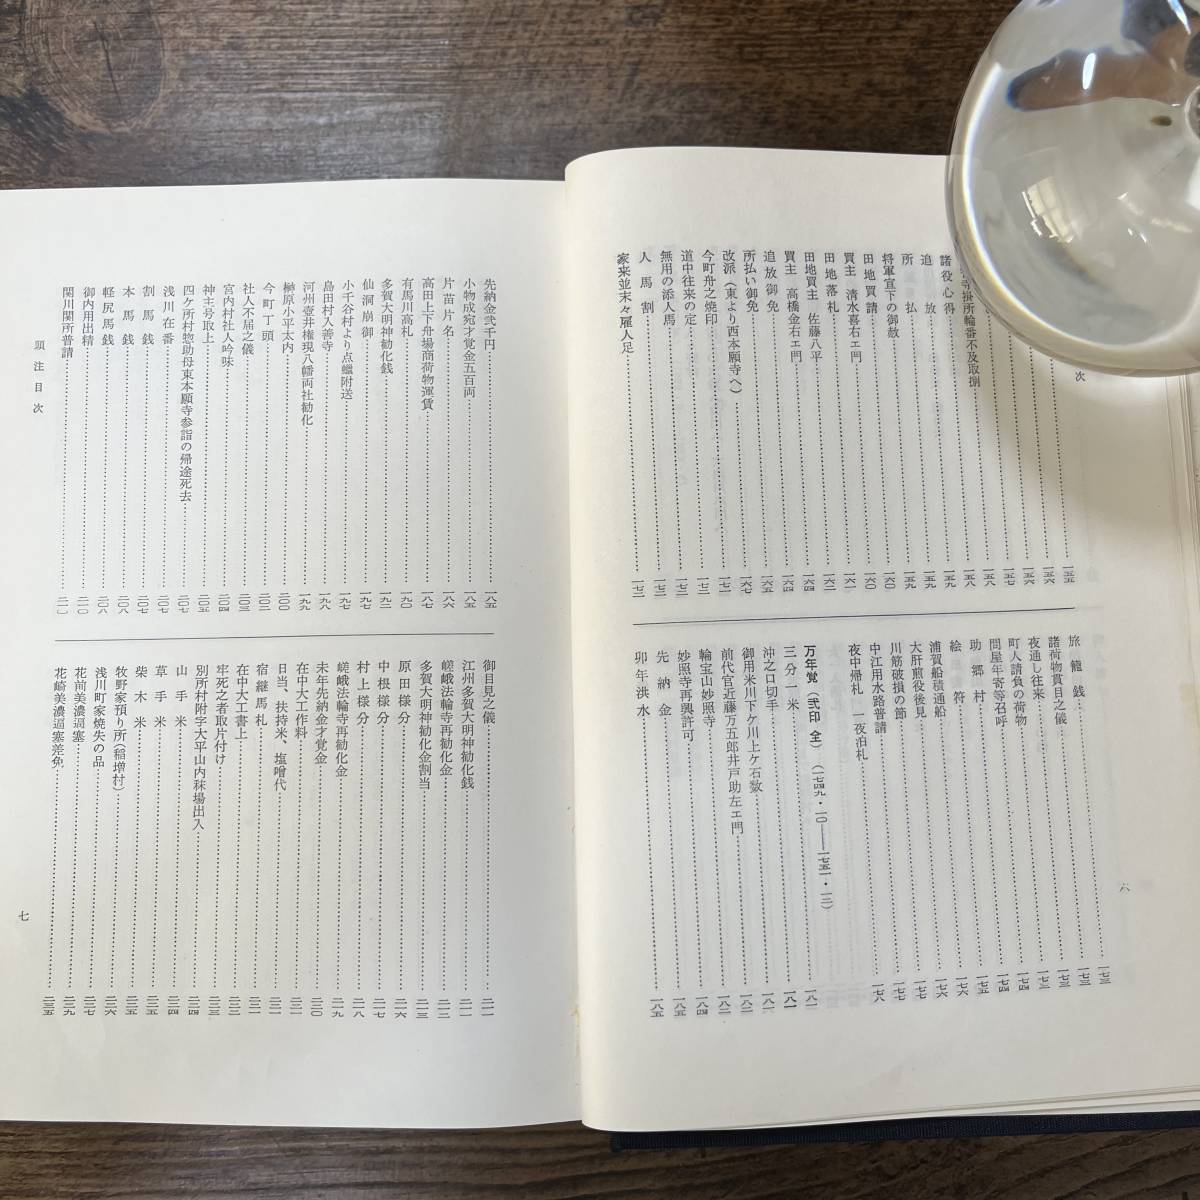 次
寺掛所輪番不及取捌…………一五八
諸役心得…………一五八
追放…………一五九
所払…………一五九
将軍宣下の御赦…………一六〇
田地買請…………一六〇
買主 清水喜右エ門…………一六一
田地落札…………一六二
田地買主 佐藤八平…………一六四
買主 高橋金右エ門…………一六四
追放御免…………一六五
所払い御免…………一六七
改派（東より西本願寺へ）…………
今町舟之焼印…………
道中往来の定…………
無用の添人馬…………
人馬割…………
家来並末々雇人足
旅籠銭…………一七三
諸荷物貫目之儀…………一七三
夜通し往来…………一七三
町人請負の荷物…………一七四
問屋年寄等召呼…………一七四
助郷村…………一七五
絵符…………一七六
浦賀船積通船…………一七六
大肝煎役後見…………一七七
川筋破損の節…………一七七
中江用水路普請…………一七八
夜中帰札 一夜泊札
万年覚（弐印 全）（一七四九・一〇――一七五一・一二）
三分一米…………一八一
沖之口切手…………一八一
御用米川下ケ川上ケ石数…………一八二
前代官近藤万五郎井戸助左エ門…………一八二
輪宝山妙照寺…………一八四
妙照寺再興許可…………一八五
先納金…………
卯年洪水…………一八五
六
先納金弐千円…………一八五
小物成宛才覚金五百両…………一八五
片苗片名…………一八六
高田上下舟場商荷物運賃…………一八七
有馬川高札…………一九〇
多賀大明神勧化銭…………一九二
仙洞崩御…………一九七
小千谷村より点蠟附送…………一九七
島田村入善寺…………一九八
河州壷井権現八幡両社勧化…………一九九
榊原小平太内…………二〇〇
今町丁頭…………二〇二
社人不届之儀…………二〇三
宮内村社人吟味…………二〇四
神主号取上…………二〇五
四ケ所村惣助母東本願寺参詣の帰途死去…………二〇七
浅川在番…………二〇七
割馬銭…………二〇七
本馬銭…………二〇八
軽尻馬銭…………二〇八
御内用出精…………二一〇
関川関所普請…………二一〇
御目見之儀…………二一一
江州多賀大明神勧化銭…………二一一
嵯峨法輪寺再勧化金…………二一二
多賀大明神勧化金割当…………二一三
原田様分…………二一六
中根様分…………二一七
村上様分…………二一八
嵯峨法輪寺再勧化金…………二一九
未年先納金才覚金…………二二〇
在中大工作料…………二二一
日当、扶持米、塩噌代…………二二一
宿継馬札…………二三一
在中大工書上…………二三三
牢死之者取片付け…………二三三
別所村附字大平山内秣場出入…………二三四
山手米…………二三四
草手米…………二三五
柴木米…………二三五
牧野家預り所（稲増村）…………二三六
浅川町家焼失の品…………二三七
花前美濃逼塞…………二三九
花崎美濃逼塞差免…………
頭注目次
七